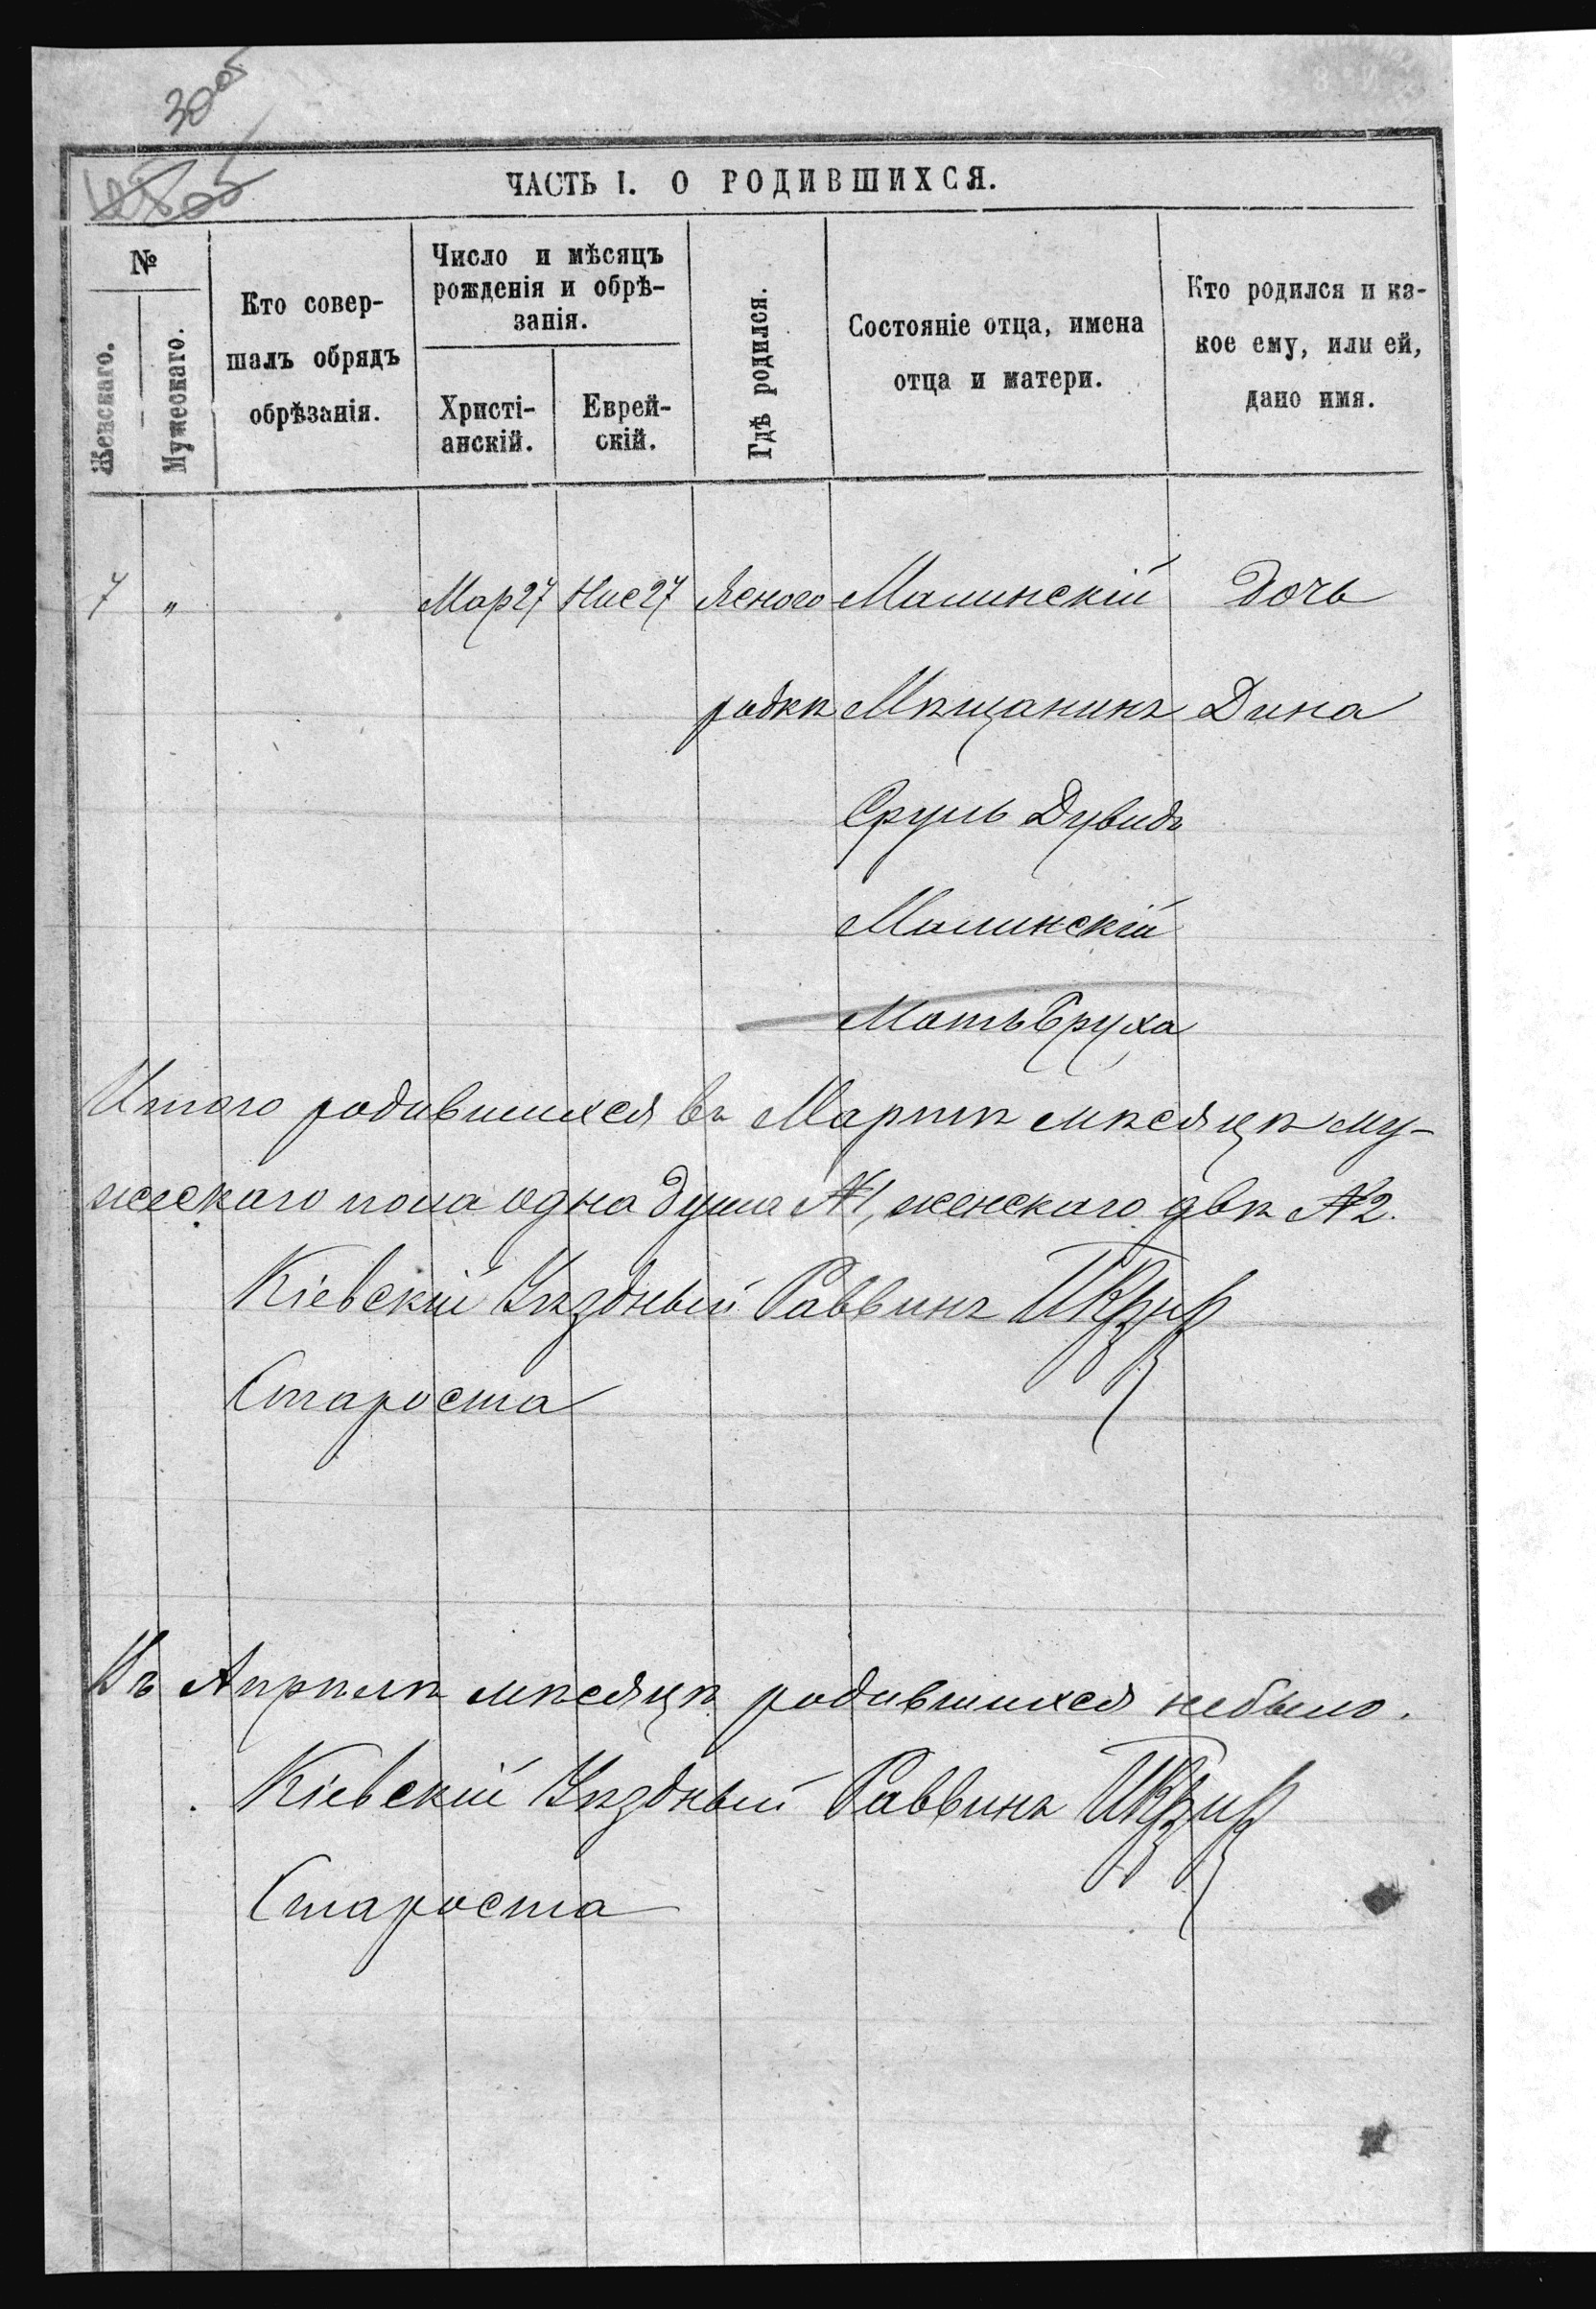 30 об
ЧАСТЬ I. О РОДИВШИХСЯ.
№
Женскаго.
Мужескаго.
Кто совер-
шалъ обрядъ
обрѣзанія.
Число и мѣсяцъ
рожденія и обрѣ-
занія.
Христі-
анскій.
Еврей-
скій.
Гдѣ родился.
Состояніе отца, имена
отца и матери.
Кто родился и ка-
кое ему, или ей,
дано имя.
7 " Мар 27 Нис 27 Ясного Малинскій Дочь
родкѣ Мѣщанинъ Дина
Сруль Дувидъ
Малинскій
Мать Бруха
Итого родившихся въ Мартѣ мѣсяцѣ му-
жескаго пола одна душа №1, женскаго двѣ №2.
Кіевскій Уѣздный Раввинъ
Староста
Въ Апрѣлѣ мѣсяцѣ родившихся небыло.
Кіевскій Уѣздный Раввинъ
Староста